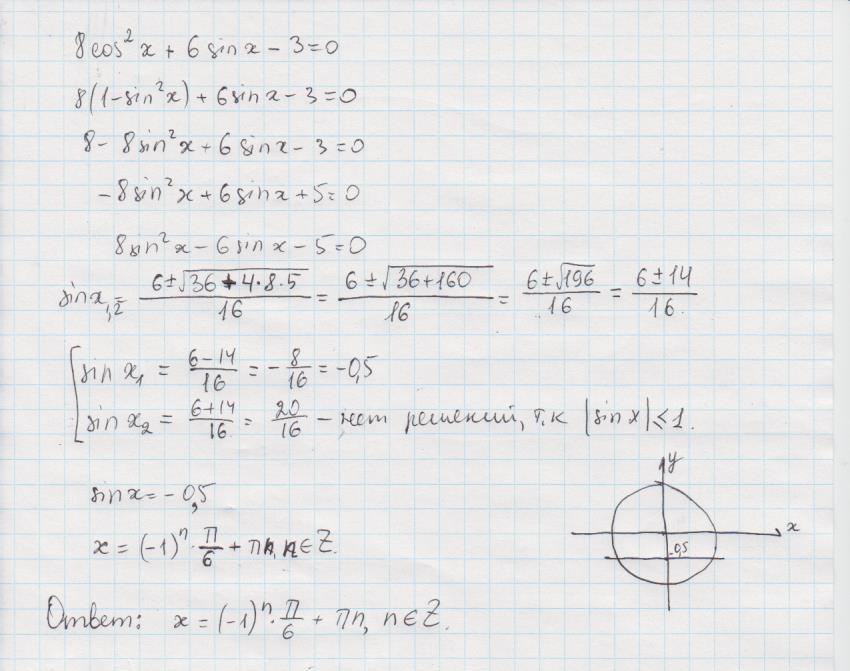 8cos²x + 6sinx - 3 = 0
8(1-sin²x) + 6sinx - 3 = 0
8 - 8sin²x + 6sinx - 3 = 0
-8sin²x + 6sinx + 5 = 0
8sin²x - 6sinx - 5 = 0
sinx₁,₂ = (6±√(36+4·8·5))/16 = (6±√(36+160))/16 = (6±√196)/16 = (6±14)/16
[sin x₁ = (6-14)/16 = -8/16 = -0,5
sin x₂ = (6+14)/16 = 20/16 - нет решений, т.к |sin x| ≤ 1.
y
sinx = -0,5
x
-0,5
x = (-1)ⁿ · π/6 + πn, n∈Z.
Ответ: x = (-1)ⁿ · π/6 + πn, n∈Z.